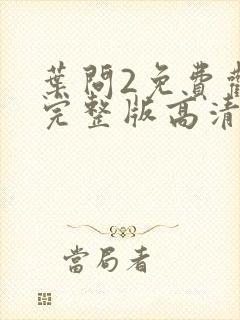 葉問2免費
完整版高清
當局者